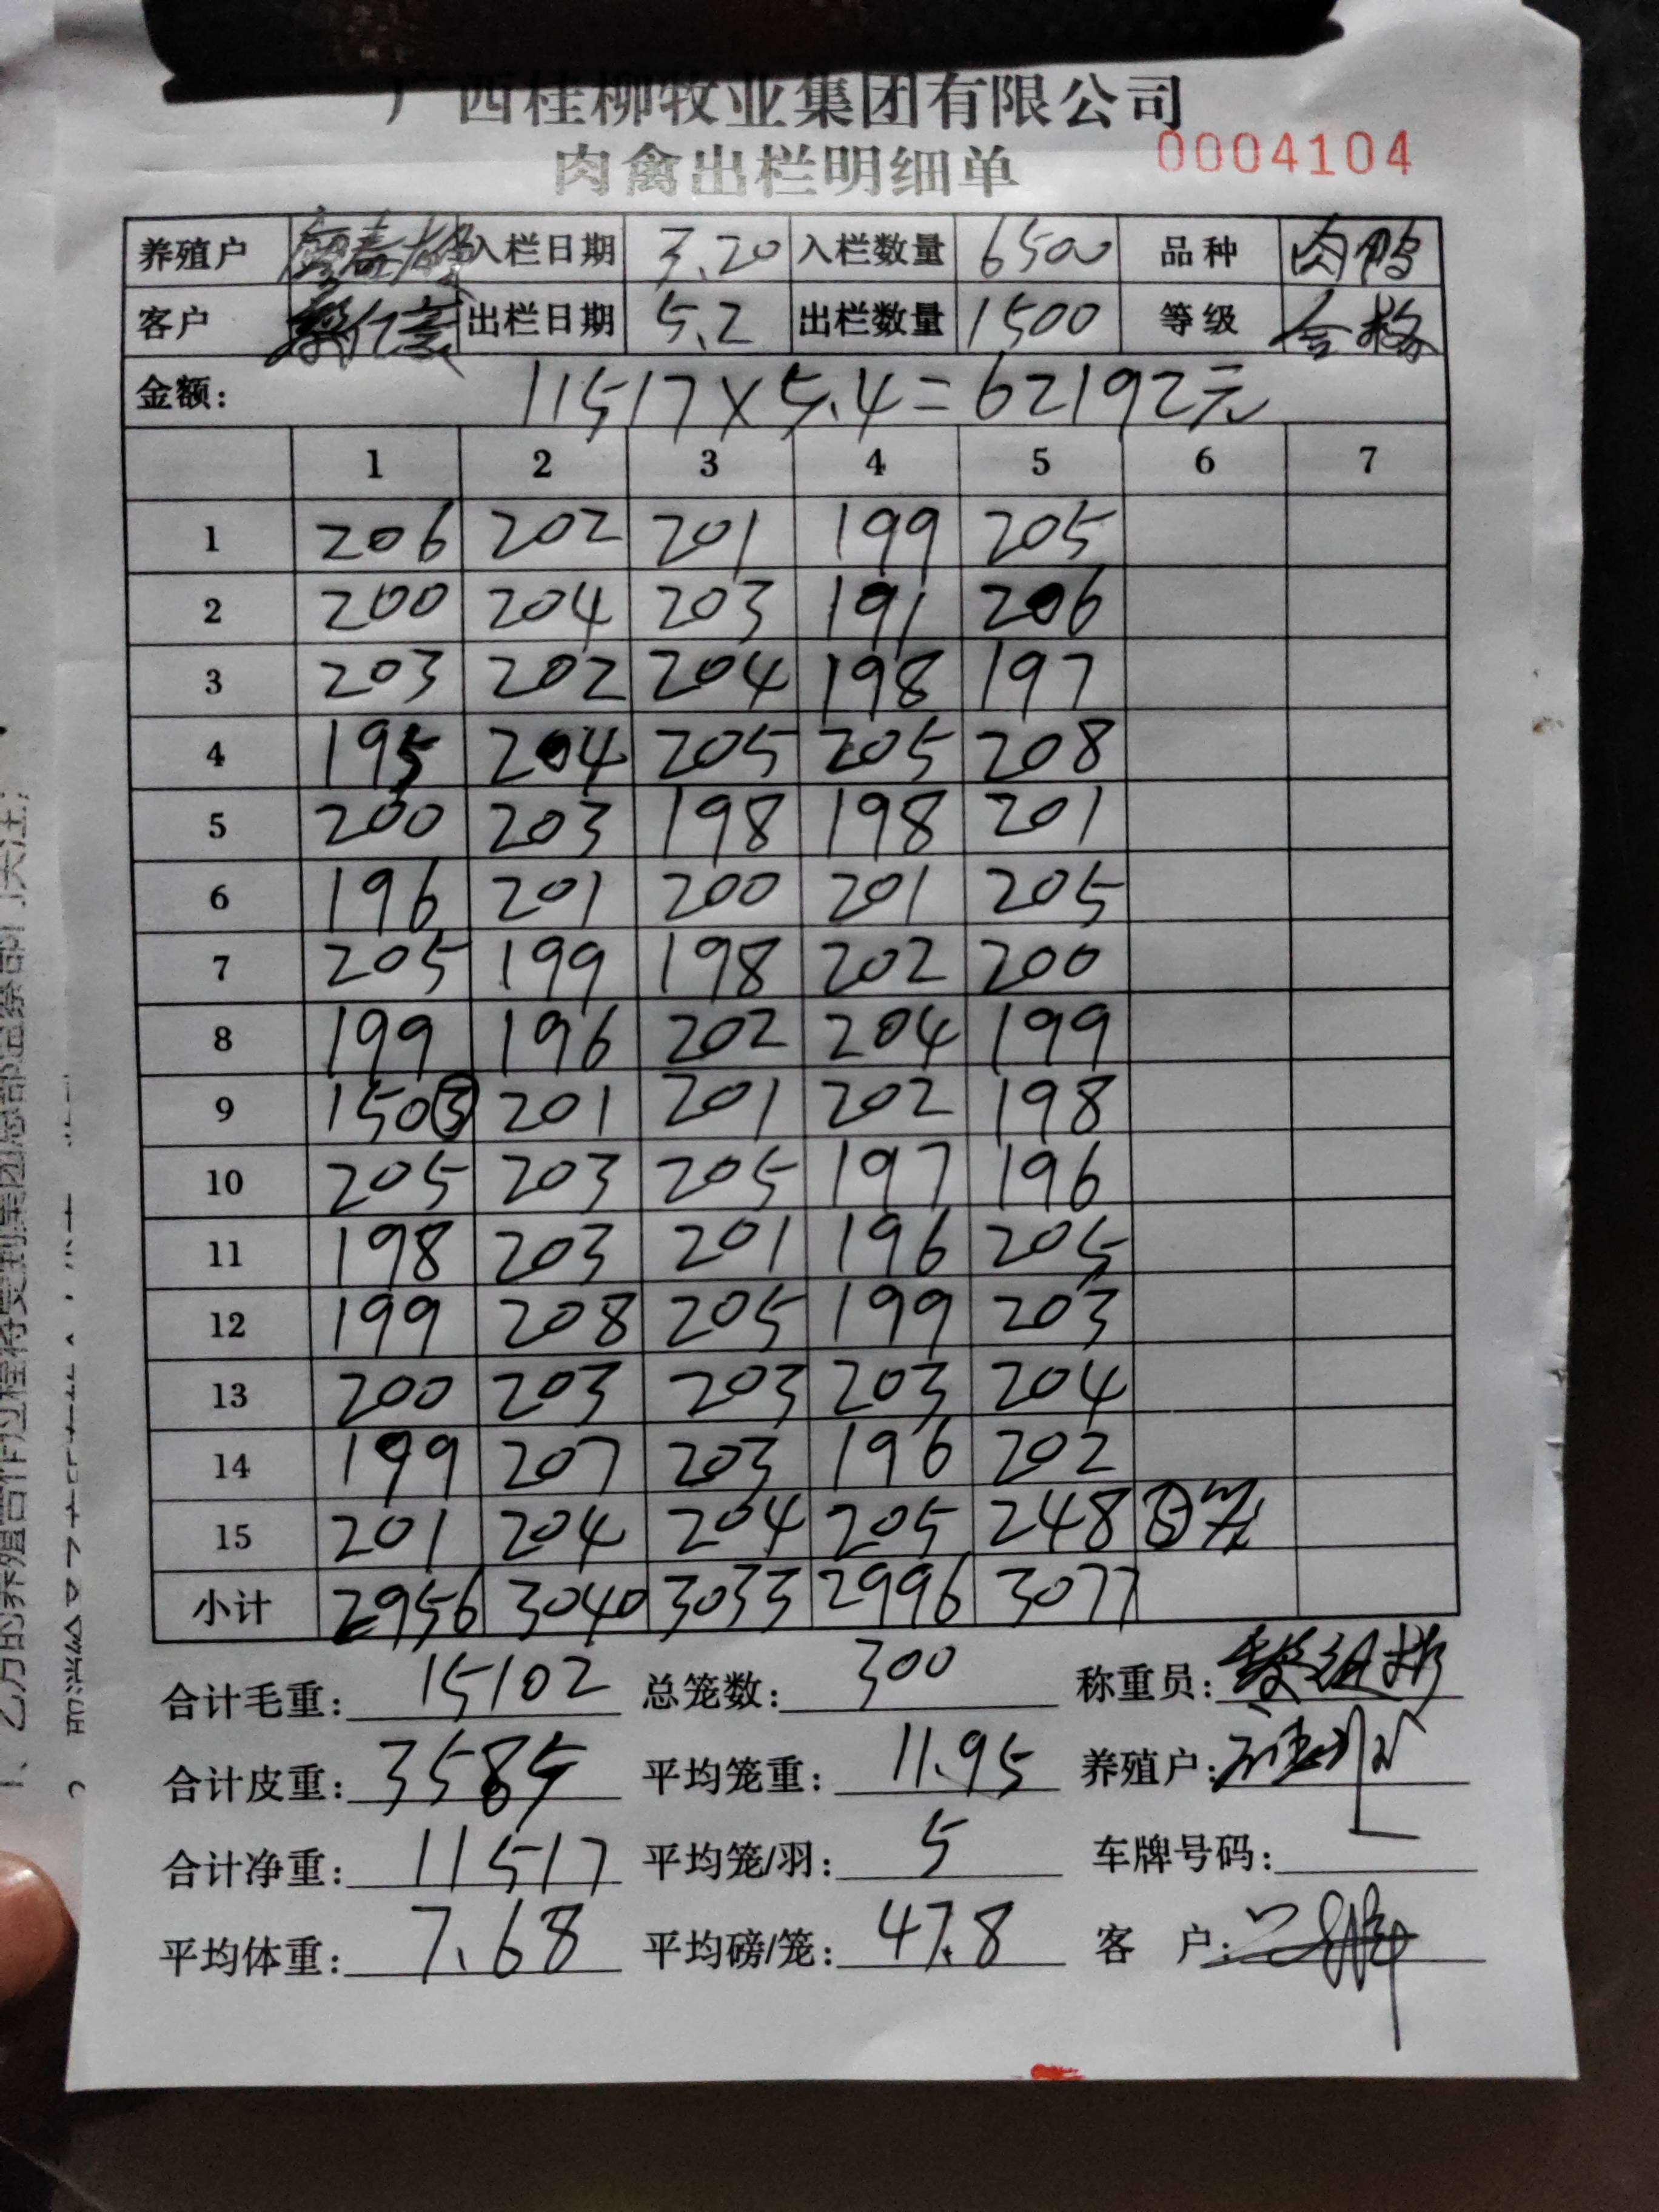 广西桂柳牧业集团有限公司
肉禽出栏明细单 0004104
养殖户 入栏日期 3.20 入栏数量 6500 品种 肉鸭
客户 出栏日期 5.2 出栏数量 1500 等级 合格
金额: 11517×5.4=62192元
1 2 3 4 5 6 7
1 206 202 201 199 205
2 200 204 203 191 206
3 203 202 204 198 197
4 195 204 205 205 208
5 200 203 198 198 201
6 196 201 200 201 205
7 205 199 198 202 200
8 199 196 202 204 199
9 150③ 201 201 202 198
10 205 203 205 197 196
11 198 203 201 196 205
12 199 208 205 199 203
13 200 203 203 203 204
14 199 207 203 196 202
15 201 204 204 205 248
小计 2956 3040 3033 2996 3077
合计毛重: 15102 总笼数: 300 称重员:
合计皮重: 3585 平均笼重: 11.95 养殖户:
合计净重: 11517 平均笼/羽: 5 车牌号码:
平均体重: 7.68 平均磅/笼: 47.8 客 户: